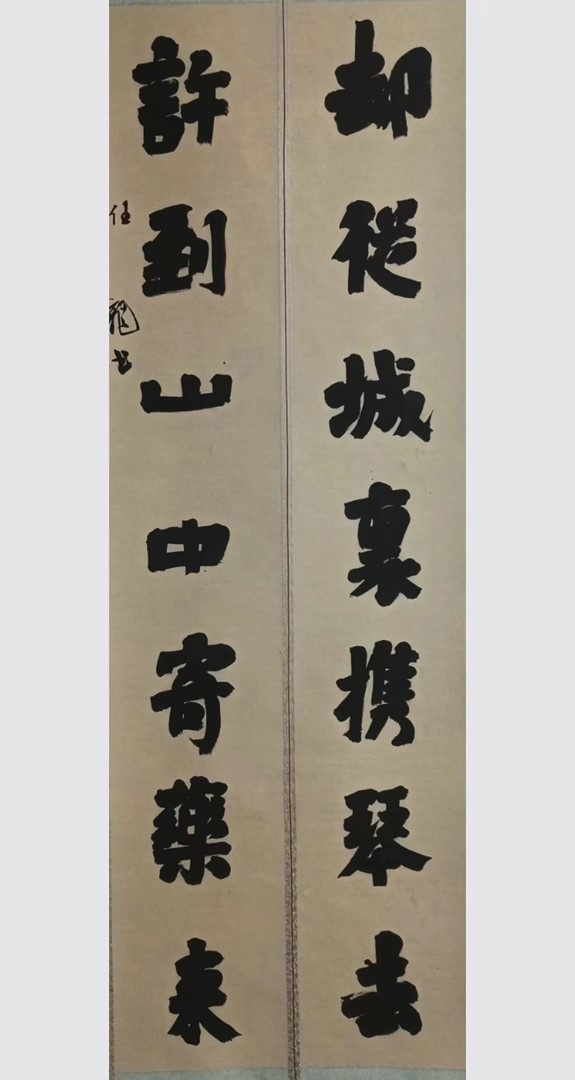 却從城裏携琴去
許到山中寄藥来
任龍书